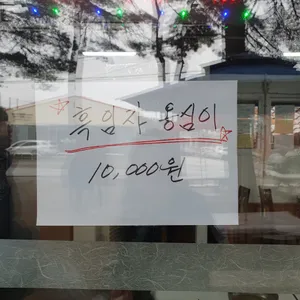 ☆흑임자 옹심이☆
10,000원